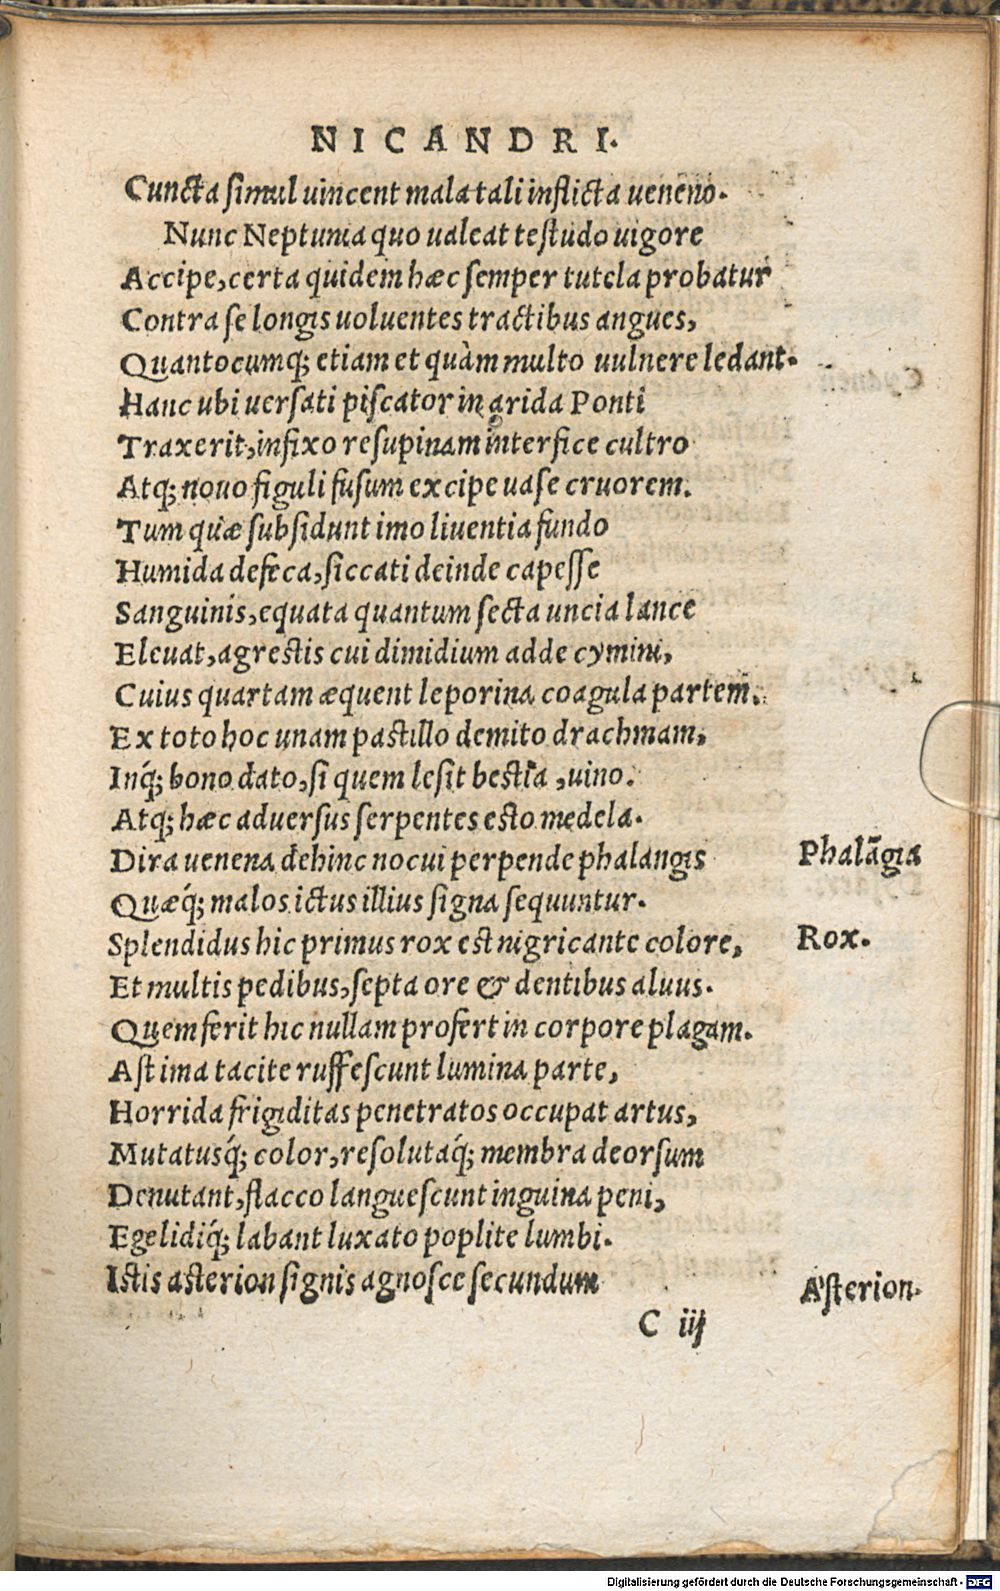 NICANDRI.
Cuncta simul uincent mala tali inflicta ueneno.
Nunc Neptunia quo ualeat testudo uigore
Accipe, certa quidem hæc semper tutela probatur
Contra se longis uoluentes tractibus angues,
Quantocumq; etiam et quàm multo uulnere ledant.
Hanc ubi uersati piscator in arida Ponti
Traxerit, infixo resupinam interfice cultro
Atq; nouo figuli fusum excipe uase cruorem.
Tum quæ subsidunt imo liuentia fundo
Humida defeca, siccati deinde capesse
Sanguinis, equata quantum secta uncia lance
Eleuat, agrestis cui dimidium adde cymini,
Cuius quartam æquent leporina coagula partem.
Ex toto hoc unam pastillo demito drachmam,
Inq́; bono dato, si quem lesit bestia, uino.
Atq; hæc aduersus serpentes esto medela.
Dira uenena dehinc nocui perpende phalangis
Phalãgia
Quæq́; malos ictus illius signa sequuntur.
Splendidus hic primus rox est nigricante colore,
Rox.
Et multis pedibus, septa ore & dentibus aluus.
Quem ferit hic nullam profert in corpore plagam.
Ast ima tacite ruffescunt lumina parte,
Horrida frigiditas penetratos occupat artus,
Mutatusq́; color, resolutaq́; membra deorsum
Denutant, flacco languescunt inguina peni,
Egelidiq́; labant luxato poplite lumbi.
Istis asterion signis agnosce secundum
Asterion.
C iij
Digitalisierung gefördert durch die Deutsche Forschungsgemeinschaft - DFG